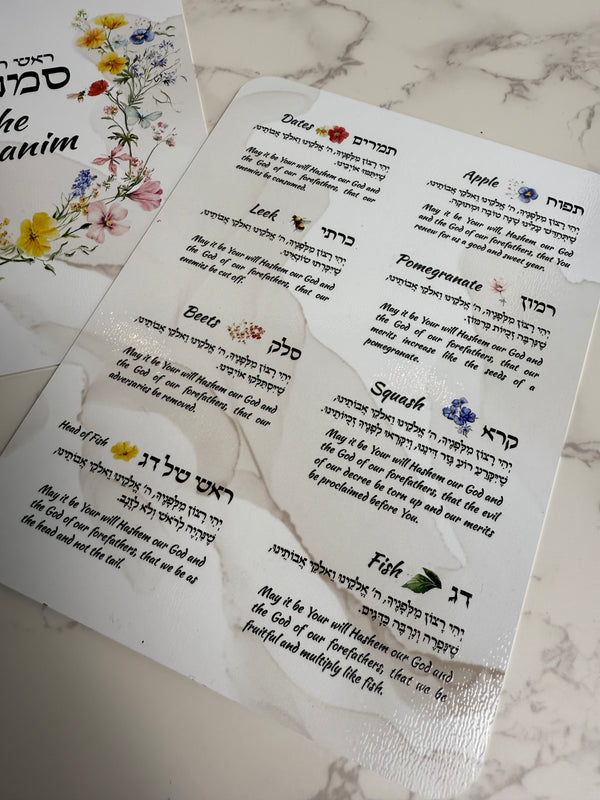 ראשי
סמו
he
anim
Dates תמרים
יְהִי רָצוֹן מִלְּפָנֶיךָ, ה' אֱלֹקֵינוּ וֵאלֹקֵי אֲבוֹתֵינוּ,
שֶׁיִּתַּמּוּ אוֹיְבֵינוּ.
May it be Your will Hashem our God and
the God of our forefathers, that our
enemies be consumed.
Leek כרתי
יְהִי רָצוֹן מִלְּפָנֶיךָ, ה' אֱלֹקֵינוּ וֵאלֹקֵי אֲבוֹתֵינוּ,
שֶׁיִּכָּרְתוּ שׂוֹנְאֵינוּ.
May it be Your will Hashem our God and
the God of our forefathers, that our
enemies be cut off.
Beets סלק
יְהִי רָצוֹן מִלְּפָנֶיךָ, ה' אֱלֹקֵינוּ וֵאלֹקֵי אֲבוֹתֵינוּ,
שֶׁיִּסְתַּלְּקוּ אוֹיְבֵינוּ.
May it be Your will Hashem our God and
the God of our forefathers, that our
adversaries be removed.
Head of Fish ראשי של דג
יְהִי רָצוֹן מִלְּפָנֶיךָ, ה' אֱלֹקֵינוּ וֵאלֹקֵי אֲבוֹתֵינוּ,
שֶׁנִּהְיֶה לְרֹאשׁ וְלֹא לְזָנָב.
May it be Your will Hashem our God and
the God of our forefathers, that we be as
the head and not the tail.
Apple תפוח
יְהִי רָצוֹן מִלְּפָנֶיךָ, ה' אֱלֹקֵינוּ וֵאלֹקֵי אֲבוֹתֵינוּ,
שֶׁתְּחַדֵּשׁ עָלֵינוּ שָׁנָה טוֹבָה וּמְתוּקָה.
May it be Your will, Hashem our God
and the God of our forefathers, that You
renew for us a good and sweet year.
Pomegranate רמון
יְהִי רָצוֹן מִלְּפָנֶיךָ, ה' אֱלֹקֵינוּ וֵאלֹקֵי אֲבוֹתֵינוּ,
שֶׁנִּרְבֶּה זְכֻיּוֹת כְּרִמּוֹן.
May it be Your will Hashem our God and
the God of our forefathers, that our
merits increase like the seeds of a
pomegranate.
Squash קרא
יְהִי רָצוֹן מִלְּפָנֶיךָ, ה' אֱלֹקֵינוּ וֵאלֹקֵי אֲבוֹתֵינוּ,
שֶׁיִּקָּרַע רוֹעַ גְּזַר דִּינֵנוּ, וְיִקָּרְאוּ לְפָנֶיךָ זְכֻיּוֹתֵינוּ.
May it be Your will Hashem our God and
the God of our forefathers, that the evil
of our decree be torn up and our merits
be proclaimed before You.
Fish דג
יְהִי רָצוֹן מִלְּפָנֶיךָ, ה' אֱלֹקֵינוּ וֵאלֹקֵי אֲבוֹתֵינוּ,
שֶׁנִּפְרֶה וְנִרְבֶּה כְּדָגִים.
May it be Your will Hashem our God and
the God of our forefathers, that we be
fruitful and multiply like fish.